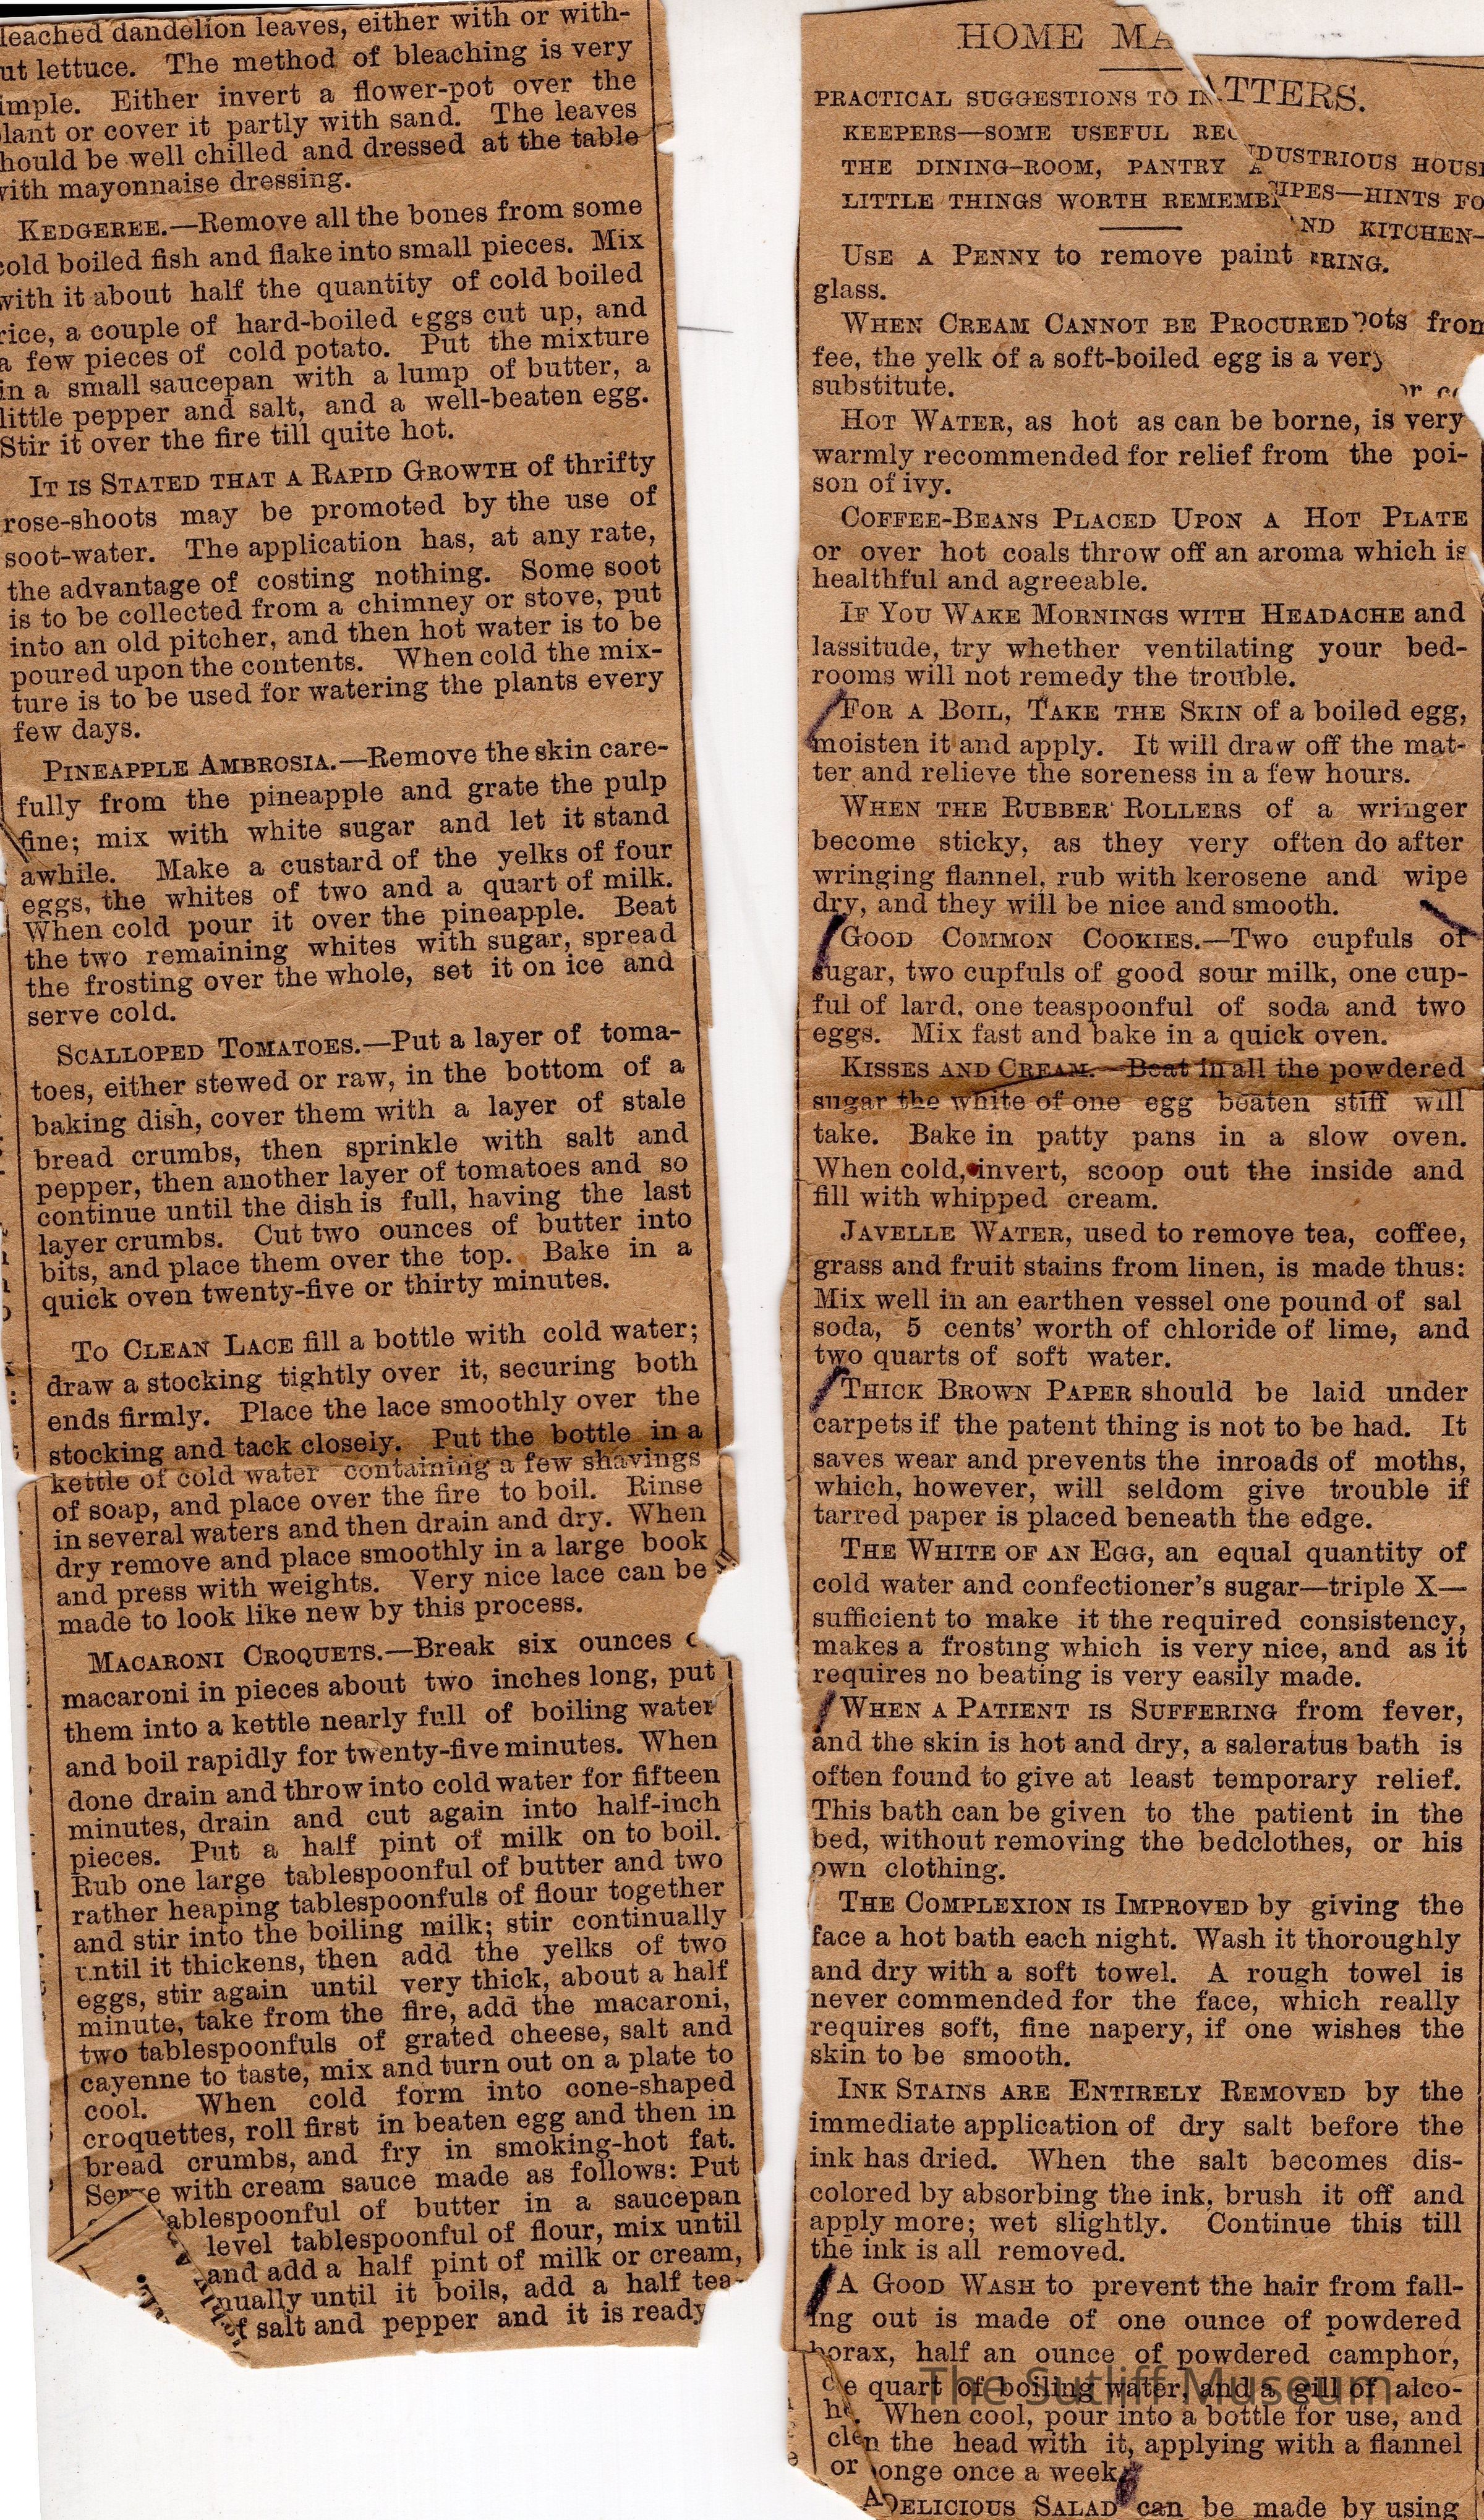 leached dandelion leaves, either with or with-
ut lettuce. The method of bleaching is very
imple. Either invert a flower-pot over the
plant or cover it partly with sand. The leaves
hould be well chilled and dressed at the table
with mayonnaise dressing.
KEDGEREE.—Remove all the bones from some
cold boiled fish and flake into small pieces. Mix
with it about half the quantity of cold boiled
rice, a couple of hard-boiled eggs cut up, and
a few pieces of cold potato. Put the mixture
in a small saucepan with a lump of butter, a
little pepper and salt, and a well-beaten egg.
Stir it over the fire till quite hot.
IT IS STATED THAT A RAPID GROWTH of thrifty
rose-shoots may be promoted by the use of
soot-water. The application has, at any rate,
the advantage of costing nothing. Some soot
is to be collected from a chimney or stove, put
into an old pitcher, and then hot water is to be
poured upon the contents. When cold the mix-
ture is to be used for watering the plants every
few days.
PINEAPPLE AMBROSIA.—Remove the skin care-
fully from the pineapple and grate the pulp
fine; mix with white sugar and let it stand
awhile. Make a custard of the yelks of four
eggs, the whites of two and a quart of milk.
When cold pour it over the pineapple. Beat
the two remaining whites with sugar, spread
the frosting over the whole, set it on ice and
serve cold.
SCALLOPED TOMATOES.—Put a layer of toma-
toes, either stewed or raw, in the bottom of a
baking dish, cover them with a layer of stale
bread crumbs, then sprinkle with salt and
pepper, then another layer of tomatoes and so
continue until the dish is full, having the last
layer crumbs. Cut two ounces of butter into
bits, and place them over the top. Bake in a
quick oven twenty-five or thirty minutes.
TO CLEAN LACE fill a bottle with cold water;
draw a stocking tightly over it, securing both
ends firmly. Place the lace smoothly over the
stocking and tack closely. Put the bottle in a
kettle of cold water containing a few shavings
of soap, and place over the fire to boil. Rinse
in several waters and then drain and dry. When
dry remove and place smoothly in a large book
and press with weights. Very nice lace can be
made to look like new by this process.
MACARONI CROQUETS.—Break six ounces
macaroni in pieces about two inches long, put
them into a kettle nearly full of boiling water
and boil rapidly for twenty-five minutes. When
done drain and throw into cold water for fifteen
minutes, drain and cut again into half-inch
pieces. Put a half pint of milk on to boil.
Rub one large tablespoonful of butter and two
rather heaping tablespoonfuls of flour together
and stir into the boiling milk; stir continually
until it thickens, then add the yelks of two
eggs, stir again until very thick, about a half
minute, take from the fire, add the macaroni,
two tablespoonfuls of grated cheese, salt and
cayenne to taste, mix and turn out on a plate to
cool. When cold form into cone-shaped
croquettes, roll first in beaten egg and then in
bread crumbs, and fry in smoking-hot fat.
Serve with cream sauce made as follows: Put
ablespoonful of butter in a saucepan
level tablespoonful of flour, mix until
and add a half pint of milk or cream,
nually until it boils, add a half tea-
f salt and pepper and it is ready
HOME MATTERS.
PRACTICAL SUGGESTIONS TO INDUSTRIOUS HOUSE
KEEPERS—SOME USEFUL RECIPES—HINTS FO
THE DINING-ROOM, PANTRY AND KITCHEN—
LITTLE THINGS WORTH REMEMBERING.
USE A PENNY to remove paint pots from
glass.
WHEN CREAM CANNOT BE PROCURED or co
fee, the yelk of a soft-boiled egg is a very
substitute.
HOT WATER, as hot as can be borne, is very
warmly recommended for relief from the poi-
son of ivy.
COFFEE-BEANS PLACED UPON A HOT PLATE
or over hot coals throw off an aroma which is
healthful and agreeable.
IF YOU WAKE MORNINGS WITH HEADACHE and
lassitude, try whether ventilating your bed-
rooms will not remedy the trouble.
FOR A BOIL, TAKE THE SKIN of a boiled egg,
moisten it and apply. It will draw off the mat-
ter and relieve the soreness in a few hours.
WHEN THE RUBBER ROLLERS of a wringer
become sticky, as they very often do after
wringing flannel, rub with kerosene and wipe
dry, and they will be nice and smooth.
GOOD COMMON COOKIES.—Two cupfuls of
sugar, two cupfuls of good sour milk, one cup-
ful of lard, one teaspoonful of soda and two
eggs. Mix fast and bake in a quick oven.
KISSES AND CREAM.—Beat in all the powdered
sugar the white of one egg beaten stiff will
take. Bake in patty pans in a slow oven.
When cold, invert, scoop out the inside and
fill with whipped cream.
JAVELLE WATER, used to remove tea, coffee,
grass and fruit stains from linen, is made thus:
Mix well in an earthen vessel one pound of sal
soda, 5 cents' worth of chloride of lime, and
two quarts of soft water.
THICK BROWN PAPER should be laid under
carpets if the patent thing is not to be had. It
saves wear and prevents the inroads of moths,
which, however, will seldom give trouble if
tarred paper is placed beneath the edge.
THE WHITE OF AN EGG, an equal quantity of
cold water and confectioner's sugar—triple X—
sufficient to make it the required consistency,
makes a frosting which is very nice, and as it
requires no beating is very easily made.
WHEN A PATIENT IS SUFFERING from fever,
and the skin is hot and dry, a saleratus bath is
often found to give at least temporary relief.
This bath can be given to the patient in the
bed, without removing the bedclothes, or his
own clothing.
THE COMPLEXION IS IMPROVED by giving the
face a hot bath each night. Wash it thoroughly
and dry with a soft towel. A rough towel is
never commended for the face, which really
requires soft, fine napery, if one wishes the
skin to be smooth.
INK STAINS ARE ENTIRELY REMOVED by the
immediate application of dry salt before the
ink has dried. When the salt becomes dis-
colored by absorbing the ink, brush it off and
apply more; wet slightly. Continue this till
the ink is all removed.
A GOOD WASH to prevent the hair from fall-
ing out is made of one ounce of powdered
borax, half an ounce of powdered camphor,
e quart of boiling water, and a gill of alco-
ho. When cool, pour into a bottle for use, and
clen the head with it, applying with a flannel
or onge once a week.
A DELICIOUS SALAD can be made by using
The Sutliff Museum